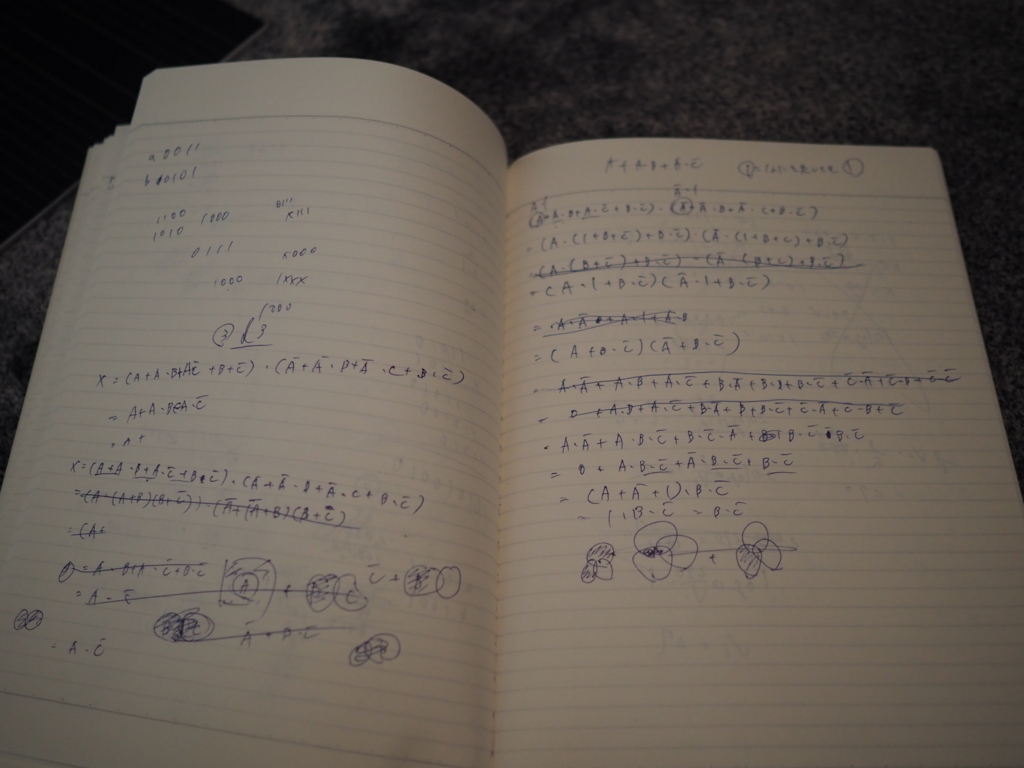 a 0011
b 00101
1100
1010
1000
0111
X111
0111
X000
1000
1XXX
1200
③
X = (A+A·B+AC̄+B+C̄)·(Ā+Ā·B+Ā·C+B·C̄)
= A+A·B+A·C̄
X = (A+A·B+A·C̄+B·C̄)·(Ā+Ā·B+Ā·C+B·C̄)
= (A·(A+B)(B+C̄))·(Ā+(Ā+B)(B+C̄)
= (A+
= A·B+A·C̄+B·C̄
= A·C̄
Ā+B·C̄
= A·C̄
A+A·B+B·C̄
A=1
Ā=1
(A+A·B+A·C̄+B·C̄)·(Ā+Ā·B+Ā·C+B·C̄)
= (A·(1+B+C̄)+B·C̄)·(Ā·(1+B+C)+B·C̄)
= (A·(B+C̄)+B·C̄)·(Ā·(B+C)+B·C̄)
= (A·1+B·C̄)(Ā·1+B·C̄)
= A·Ā+A·1+Ā·B
= (A+B·C̄)(Ā+B·C̄)
= A·Ā+A·B+A·C̄+B·Ā+B·B+B·C̄+C̄·Ā+C̄·B+C̄·C̄
= 0+A·B+A·C̄+B·Ā+B+B·C̄+C̄·Ā+C̄·B+C̄
= A·Ā+A·B·C̄+B·C̄·Ā+B·C̄·B·C̄
= 0+A·B·C̄+Ā·B·C̄+B·C̄
= (A+Ā+1)·B·C̄
= 1·B·C̄ = B·C̄
+